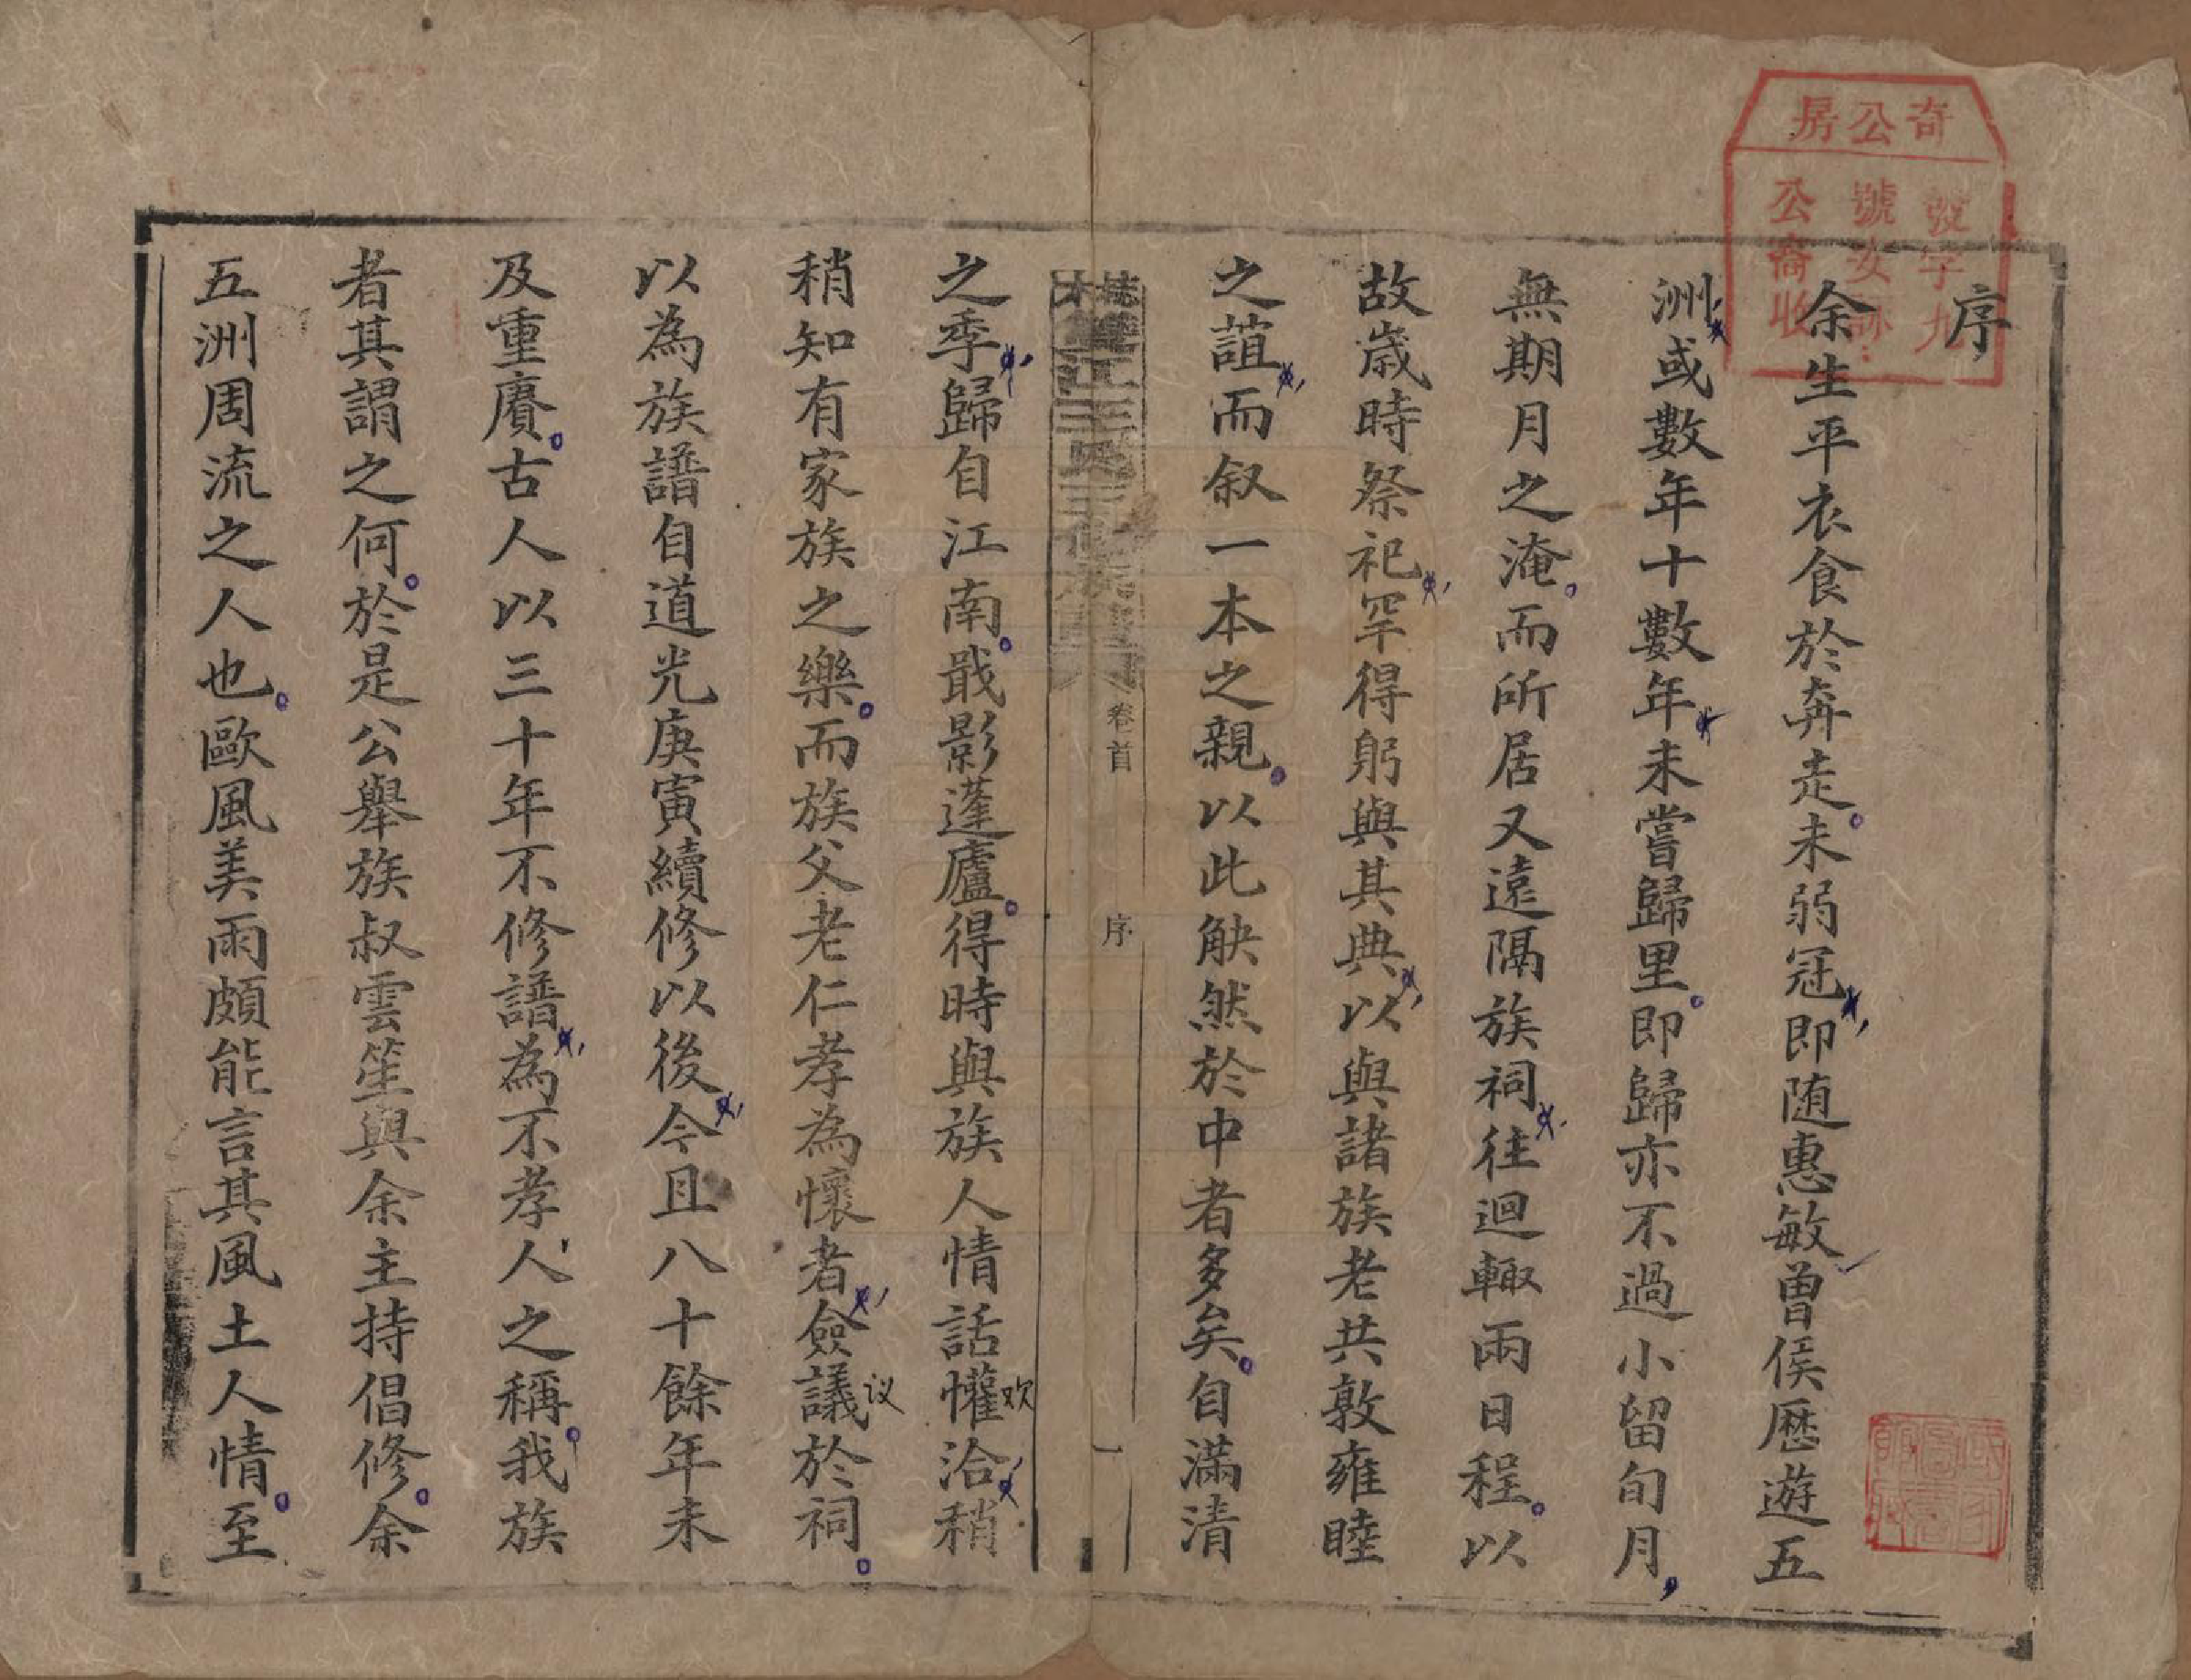 奇公房
發字九
號
公裔收
序
余生平衣食於奔走未弱冠即随惠敏曾侯歷遊五
洲或數年十數年未嘗歸里即歸亦不過小留旬月
無期月之淹而所居又遠隔族祠往迴輙兩日程以
故歲時祭祀罕得躬與其典以與諸族老共敦雍睦
之誼而叙一本之親以此觖然於中者多矣自滿清
江王氏三修族譜
卷首
序
一
之季歸自江南戢影蓬廬得時與族人情話懽洽稍
欢
稍知有家族之樂而族父老仁孝為懷者僉議於祠
议
以為族譜自道光庚寅續修以後今且八十餘年未
及重賡古人以三十年不修譜為不孝人之稱我族
者其謂之何於是公舉族叔雲笙與余主持倡修余
五洲周流之人也歐風美雨頗能言其風土人情至